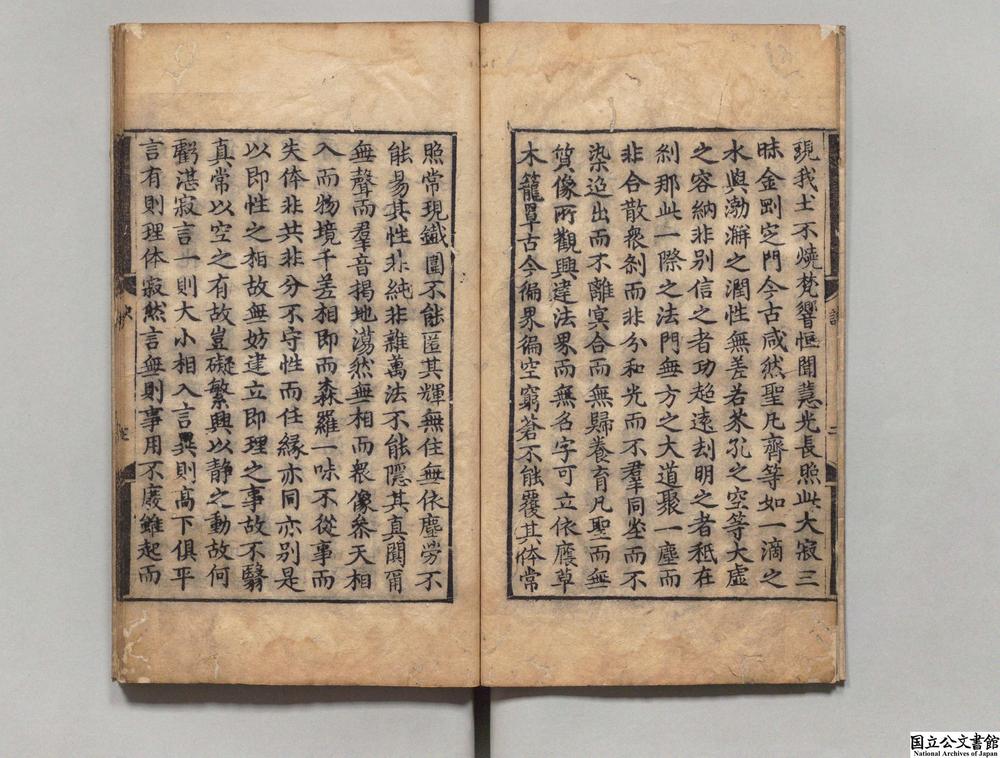 現我土不燒梵響恒聞慧光長照此大寂三
昧金剛定門今古咸然聖凡齊等如一滴之
水與渤澥之潤性無差若芥孔之空等大虚
之容納非别信之者功超遠刼明之者秪在
刹那此一際之法門無方之大道聚一塵而
非合散衆刹而非分和光而不羣同坐而不
染迢出而不離冥合而無歸養育凡聖而無
質像所觀興違法界而無名字可立依䕃草
木籠罩古今徧界徧空窮蒼不能覆其体常
照常現鐵圍不能匿其輝無住無依塵勞不
能易其性非純非雜萬法不能隱其真闃爾
無聲而羣音揭地蕩然無相而衆像參天相
入而物境千差相即而森羅一味不從事而
失体非共非分不守性而任緣亦同亦别是
以即性之相故無妨建立即理之事故不翳
真常以空之有故豈礙繁興以静之動故何
虧湛寂言一則大小相入言異則高下俱平
言有則理体寂然言無則事用不廢雖起而
国立公文書館
National Archives of Japan